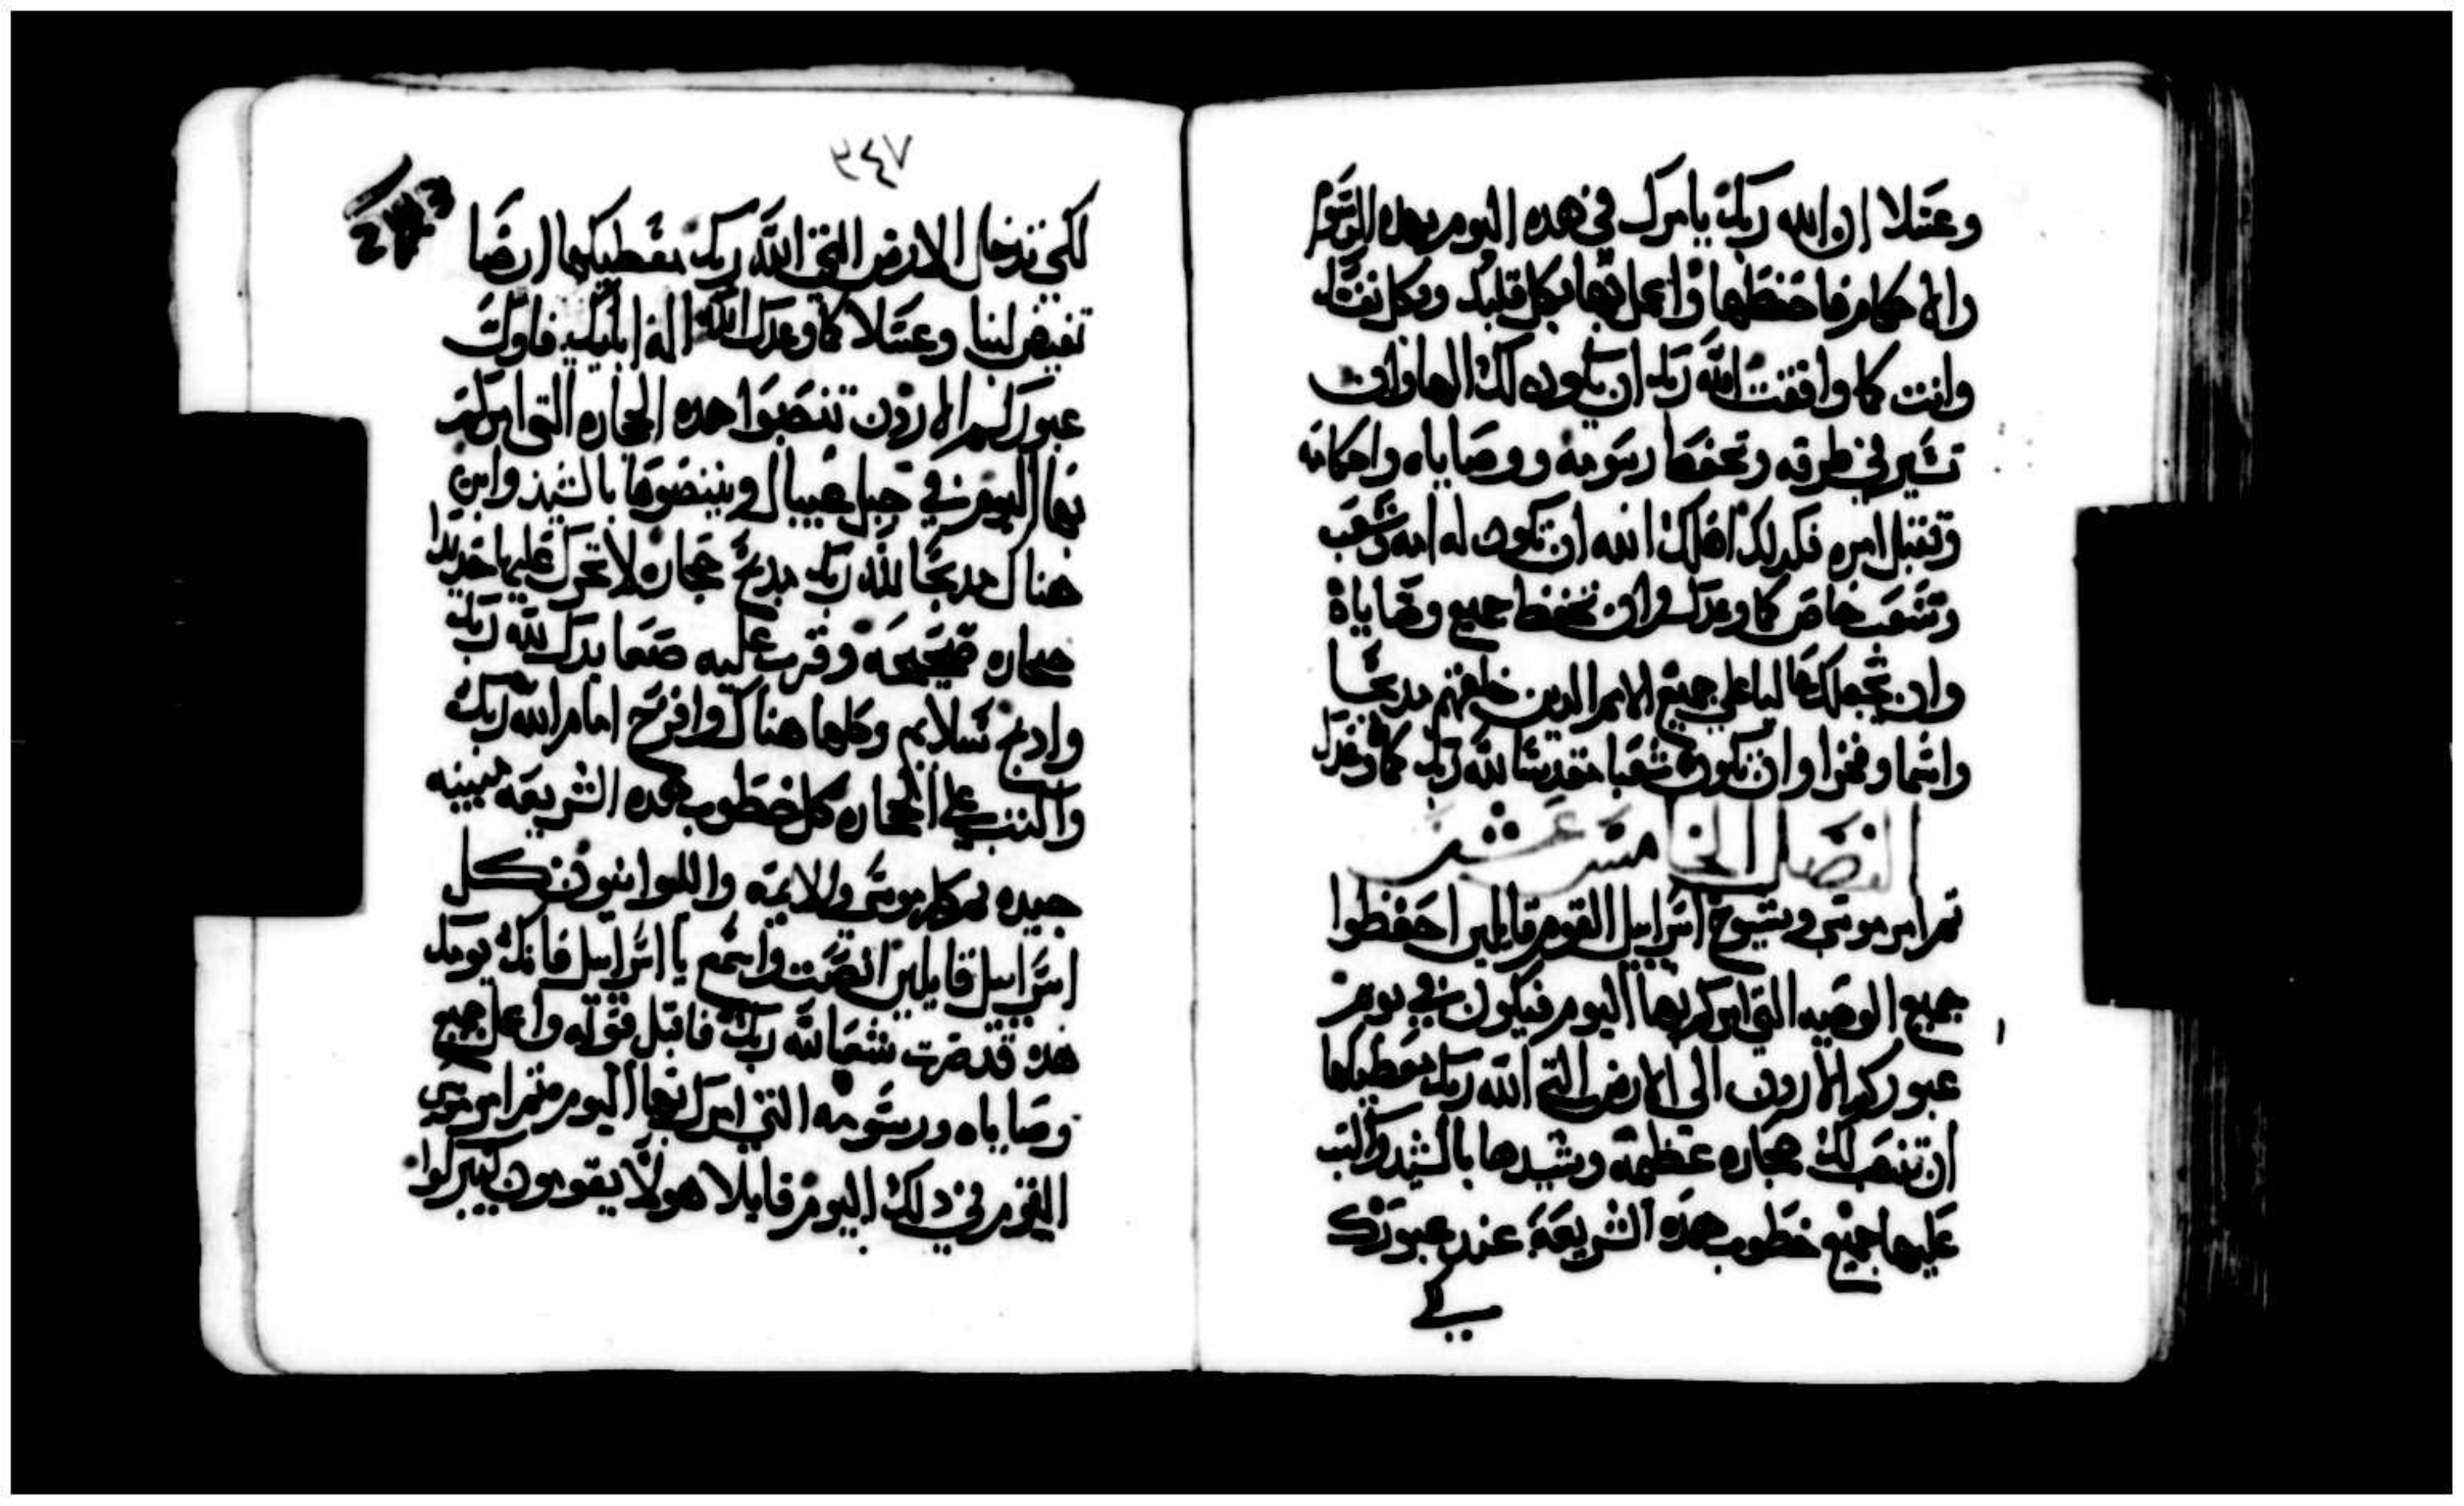 وعسلا ان الله ربك يامرك في هده اليوم بهده الرسوم
والاحكام فاحفظها واعمل بها بكل قلبك وبكل نفسك
وانت كما وافقت الله ربك ان يكون لك الها وان
تسير في طرقه وتحفظ رسومه ووصاياه واحكامه
وتقبل امره فكدلك الله ان تكون له امه وشعب
وتشعب خاص كما وعدك وان تحفظ جميع وصاياه
وان يجعلك عاليا على جميع الامم الدين خلقهم مديحا
واسما وفخرا وان تكون شعبا مقدسا لله ربك كما وعدك
الفصل الخامس عشر
تم امر موسى وشيوخ اسراييل القوم قايلين احفظوا
جميع الوصيه التي امركم بها اليوم فيكون في يوم
عبوركم الاردن الي الارض التي الله ربك معطيكها
ان تنصب لك حجاره عظيمة وشيدها بالشيد واكتب
عليها جميع خطوب هده الشريعة عند عبورك
لكي
٣٤٧
لكي تدخل الارض التي الله ربك معطيكها ارضا
تفيض لبنا وعسلا كما وعدك الله اله ابايك فاول
عبوركم الاردن تنصبوا هده الحجاره التي امركم
بها اليوم في جبل عيبال وبيضوها بالشيد وابن
هناك مدبحا لله ربك مدبح حجاره لا تحرك عليها حديدا
حجاره صحيحه وقرب عليه صعايدك لله ربك
وادبح سلايم وكلها هناك وافرح امام الله ربك
واكتب على الحجاره كل خطوب هده الشريعه مبينه
جيده تم كلم موسى والايمة واللوانيون كل
اسراييل قايلين انصت واسمع يا اسراييل فانك يومك
هده قد صرت شعبا لله ربك فاقبل قوله واعمل جميع
وصاياه ورسومه التي امرك بها اليوم تم امر موسى
القوم في دلك اليوم قايلا هولا يقومون ليبركوا